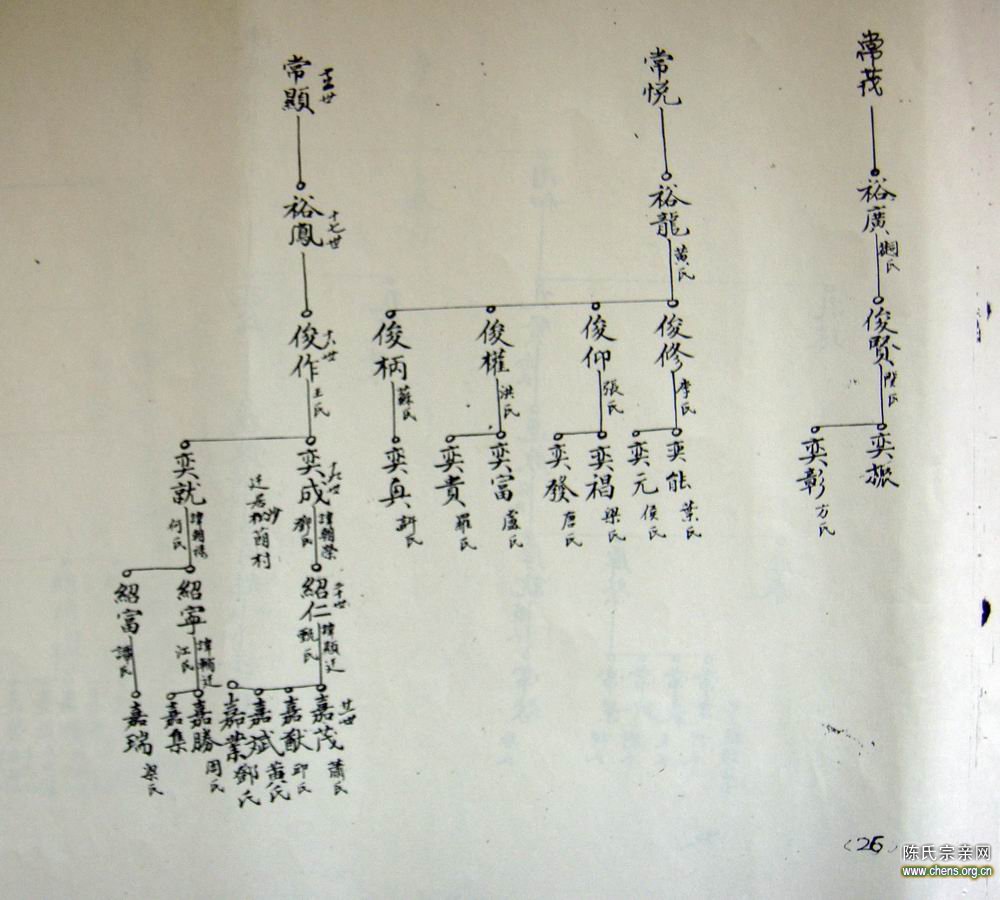 常茂
裕廣
氏
俊賢
氏
奕振
奕彰
方氏
常悦
裕龍
黃氏
俊修
李氏
奕能
葉氏
奕元
侯氏
俊仰
張氏
奕禓
梁氏
奕發
唐氏
俊權
洪氏
奕富
盧氏
奕貴
羅氏
俊柄
蘇氏
奕真
許氏
常顯
世
裕鳳
十七世
俊作
十八世
王氏
奕成
十九世
諱朝榮
鄧氏
遷居
村
紹仁
二十世
諱顯廷
甄氏
嘉茂
廿一世
蕭氏
嘉猷
邱氏
嘉斌
黃氏
嘉業
鄧氏
奕就
諱朝
何氏
紹寧
諱輔廷
江氏
嘉勝
周氏
嘉集
紹富
譚氏
嘉瑞
梁氏
(26)
陈氏宗亲网
www.chens.org.cn